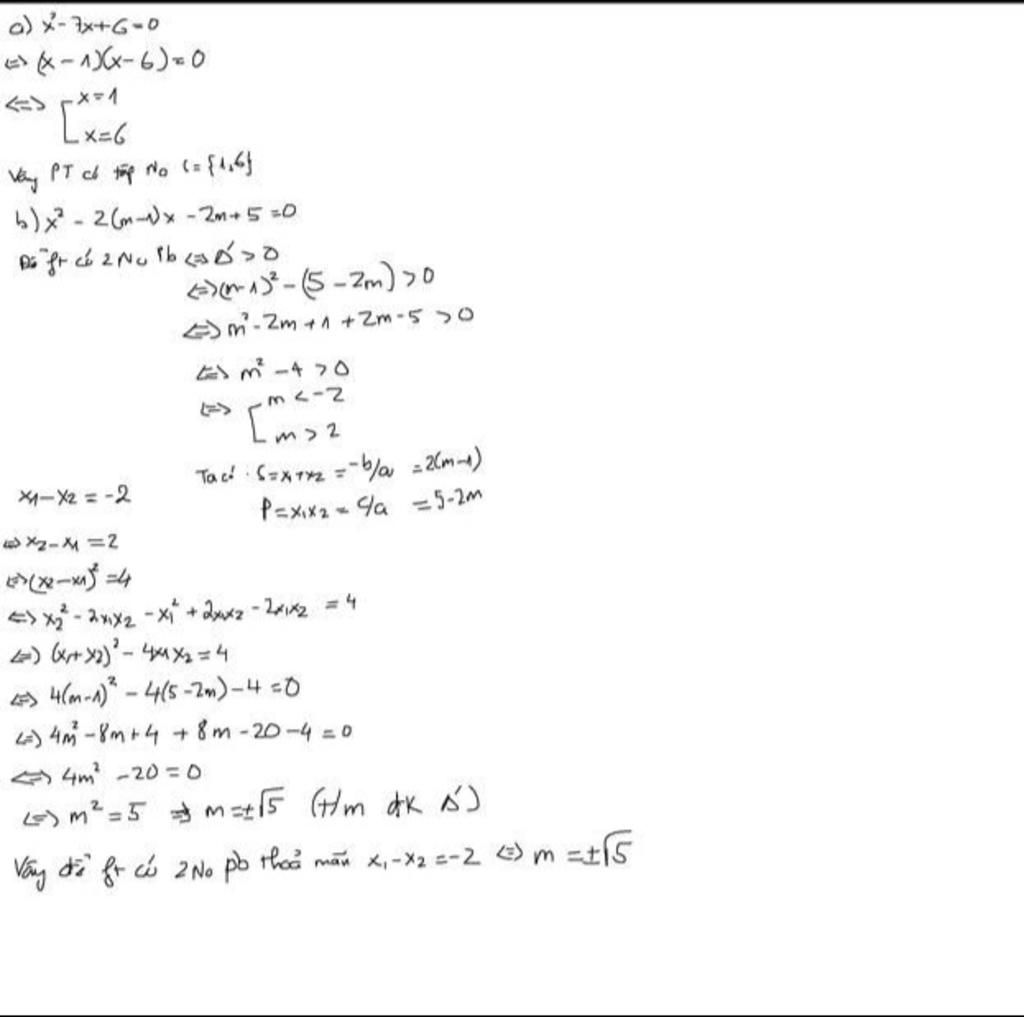 a) x² - 7x + 6 = 0
<=> (x - 1)(x - 6) = 0
<=> [ x = 1
x = 6
Vậy PT có tập No S = {1,6}
b) x² - 2(m-1)x - 2m + 5 = 0
Để pt có 2 No Pb <=> Δ' > 0
<=> (m-1)² - (5 - 2m) > 0
<=> m² - 2m + 1 + 2m - 5 > 0
<=> m² - 4 > 0
<=> [ m < -2
m > 2
Ta có: S = x₁ + x₂ = -b/a = 2(m-1)
P = x₁x₂ = c/a = 5 - 2m
x₁ - x₂ = -2
<=> x₂ - x₁ = 2
<=> (x₂ - x₁)² = 4
<=> x₂² - 2x₁x₂ - x₁² + 2x₁x₂ - 2x₁x₂ = 4
<=> (x₁ + x₂)² - 4x₁x₂ = 4
<=> 4(m-1)² - 4(5 - 2m) - 4 = 0
<=> 4m² - 8m + 4 + 8m - 20 - 4 = 0
<=> 4m² - 20 = 0
<=> m² = 5 => m = ±√5 (t/m đk Δ')
Vậy để pt có 2 No pb thoả mãn x₁ - x₂ = -2 <=> m = ±√5